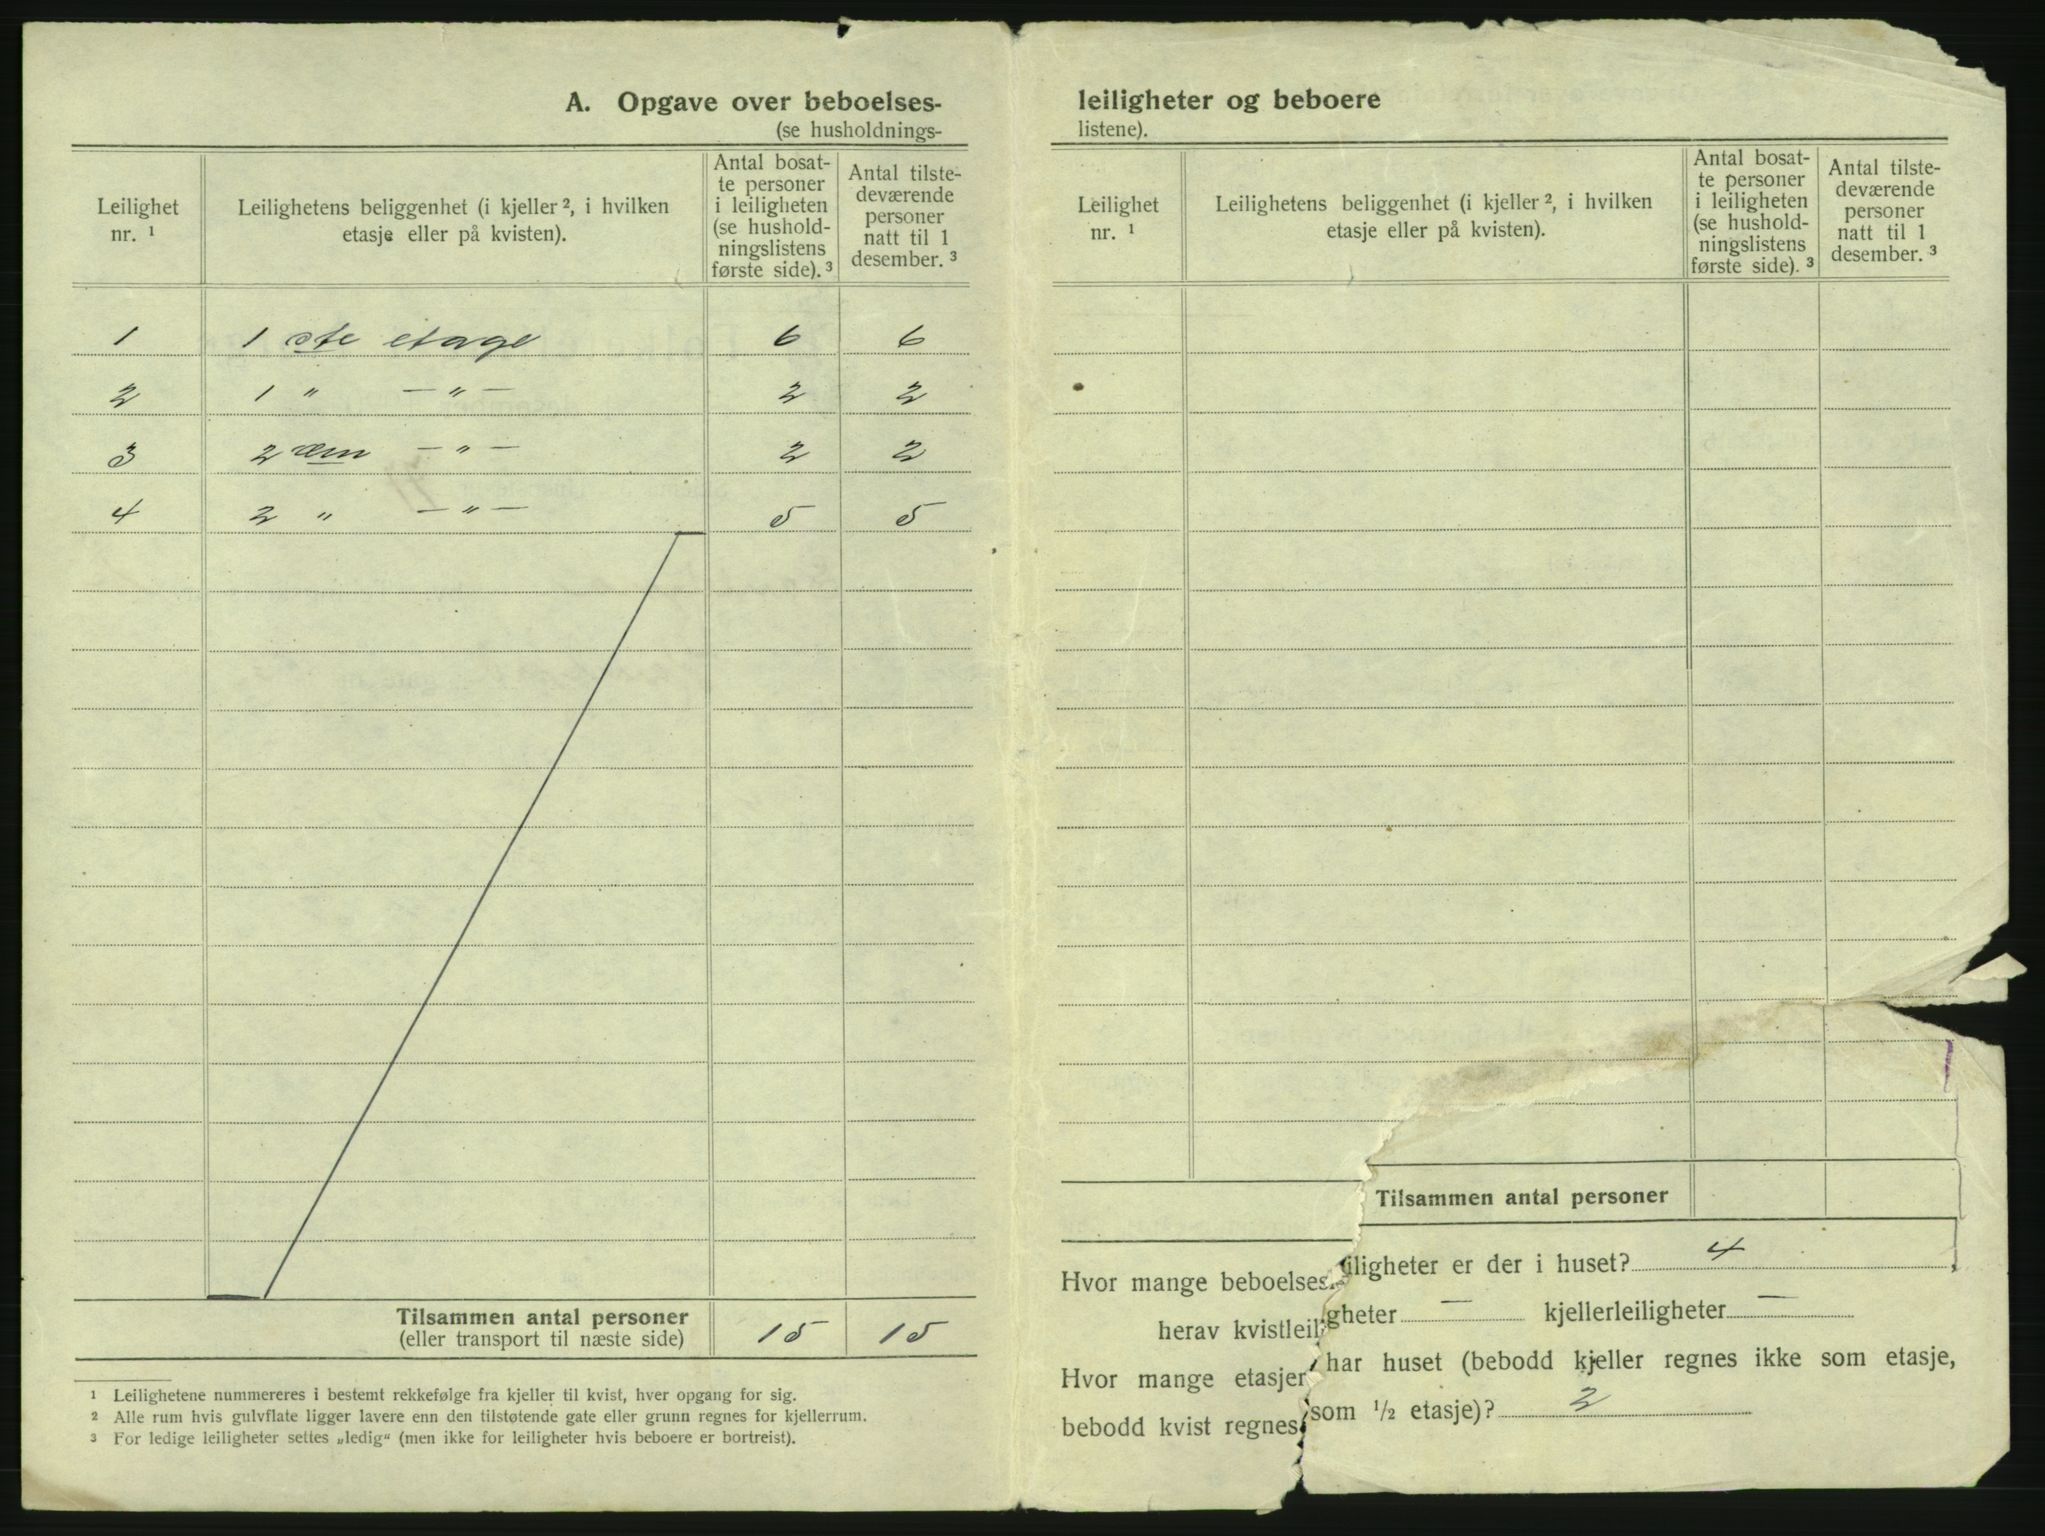 A. Opgave over beboelses-
(se husholdnings-
Leilighet
nr. ¹
Leilighetens beliggenhet (i kjeller ², i hvilken
etasje eller på kvisten).
Antal bosat-
te personer
i leiligheten
(se hushold-
ningslistens
første side). ³
Antal tilste-
deværende
personer
natt til 1
desember. ³
1 1 ste etage 6 6
2 1 " — " — 2 2
3 2 æn — " — 2 2
4 2 " — " — 5 5
Tilsammen antal personer
(eller transport til næste side) 15 15
¹ Leilighetene nummereres i bestemt rekkefølge fra kjeller til kvist, hver opgang for sig.
² Alle rum hvis gulvflate ligger lavere enn den tilstøtende gate eller grunn regnes for kjellerrum.
³ For ledige leiligheter settes „ledig“ (men ikke for leiligheter hvis beboere er bortreist).
leiligheter og beboere
listene).
Leilighet
nr. ¹
Leilighetens beliggenhet (i kjeller ², i hvilken
etasje eller på kvisten).
Antal bosat-
te personer
i leiligheten
(se hushold-
ningslistens
første side). ³
Antal tilste-
deværende
personer
natt til 1
desember. ³
Tilsammen antal personer
Hvor mange beboelses iligheter er der i huset? 4
herav kvistleil gheter — kjellerleiligheter —
Hvor mange etasjer har huset (bebodd kjeller regnes ikke som etasje,
bebodd kvist regnes som ½ etasje)? 2